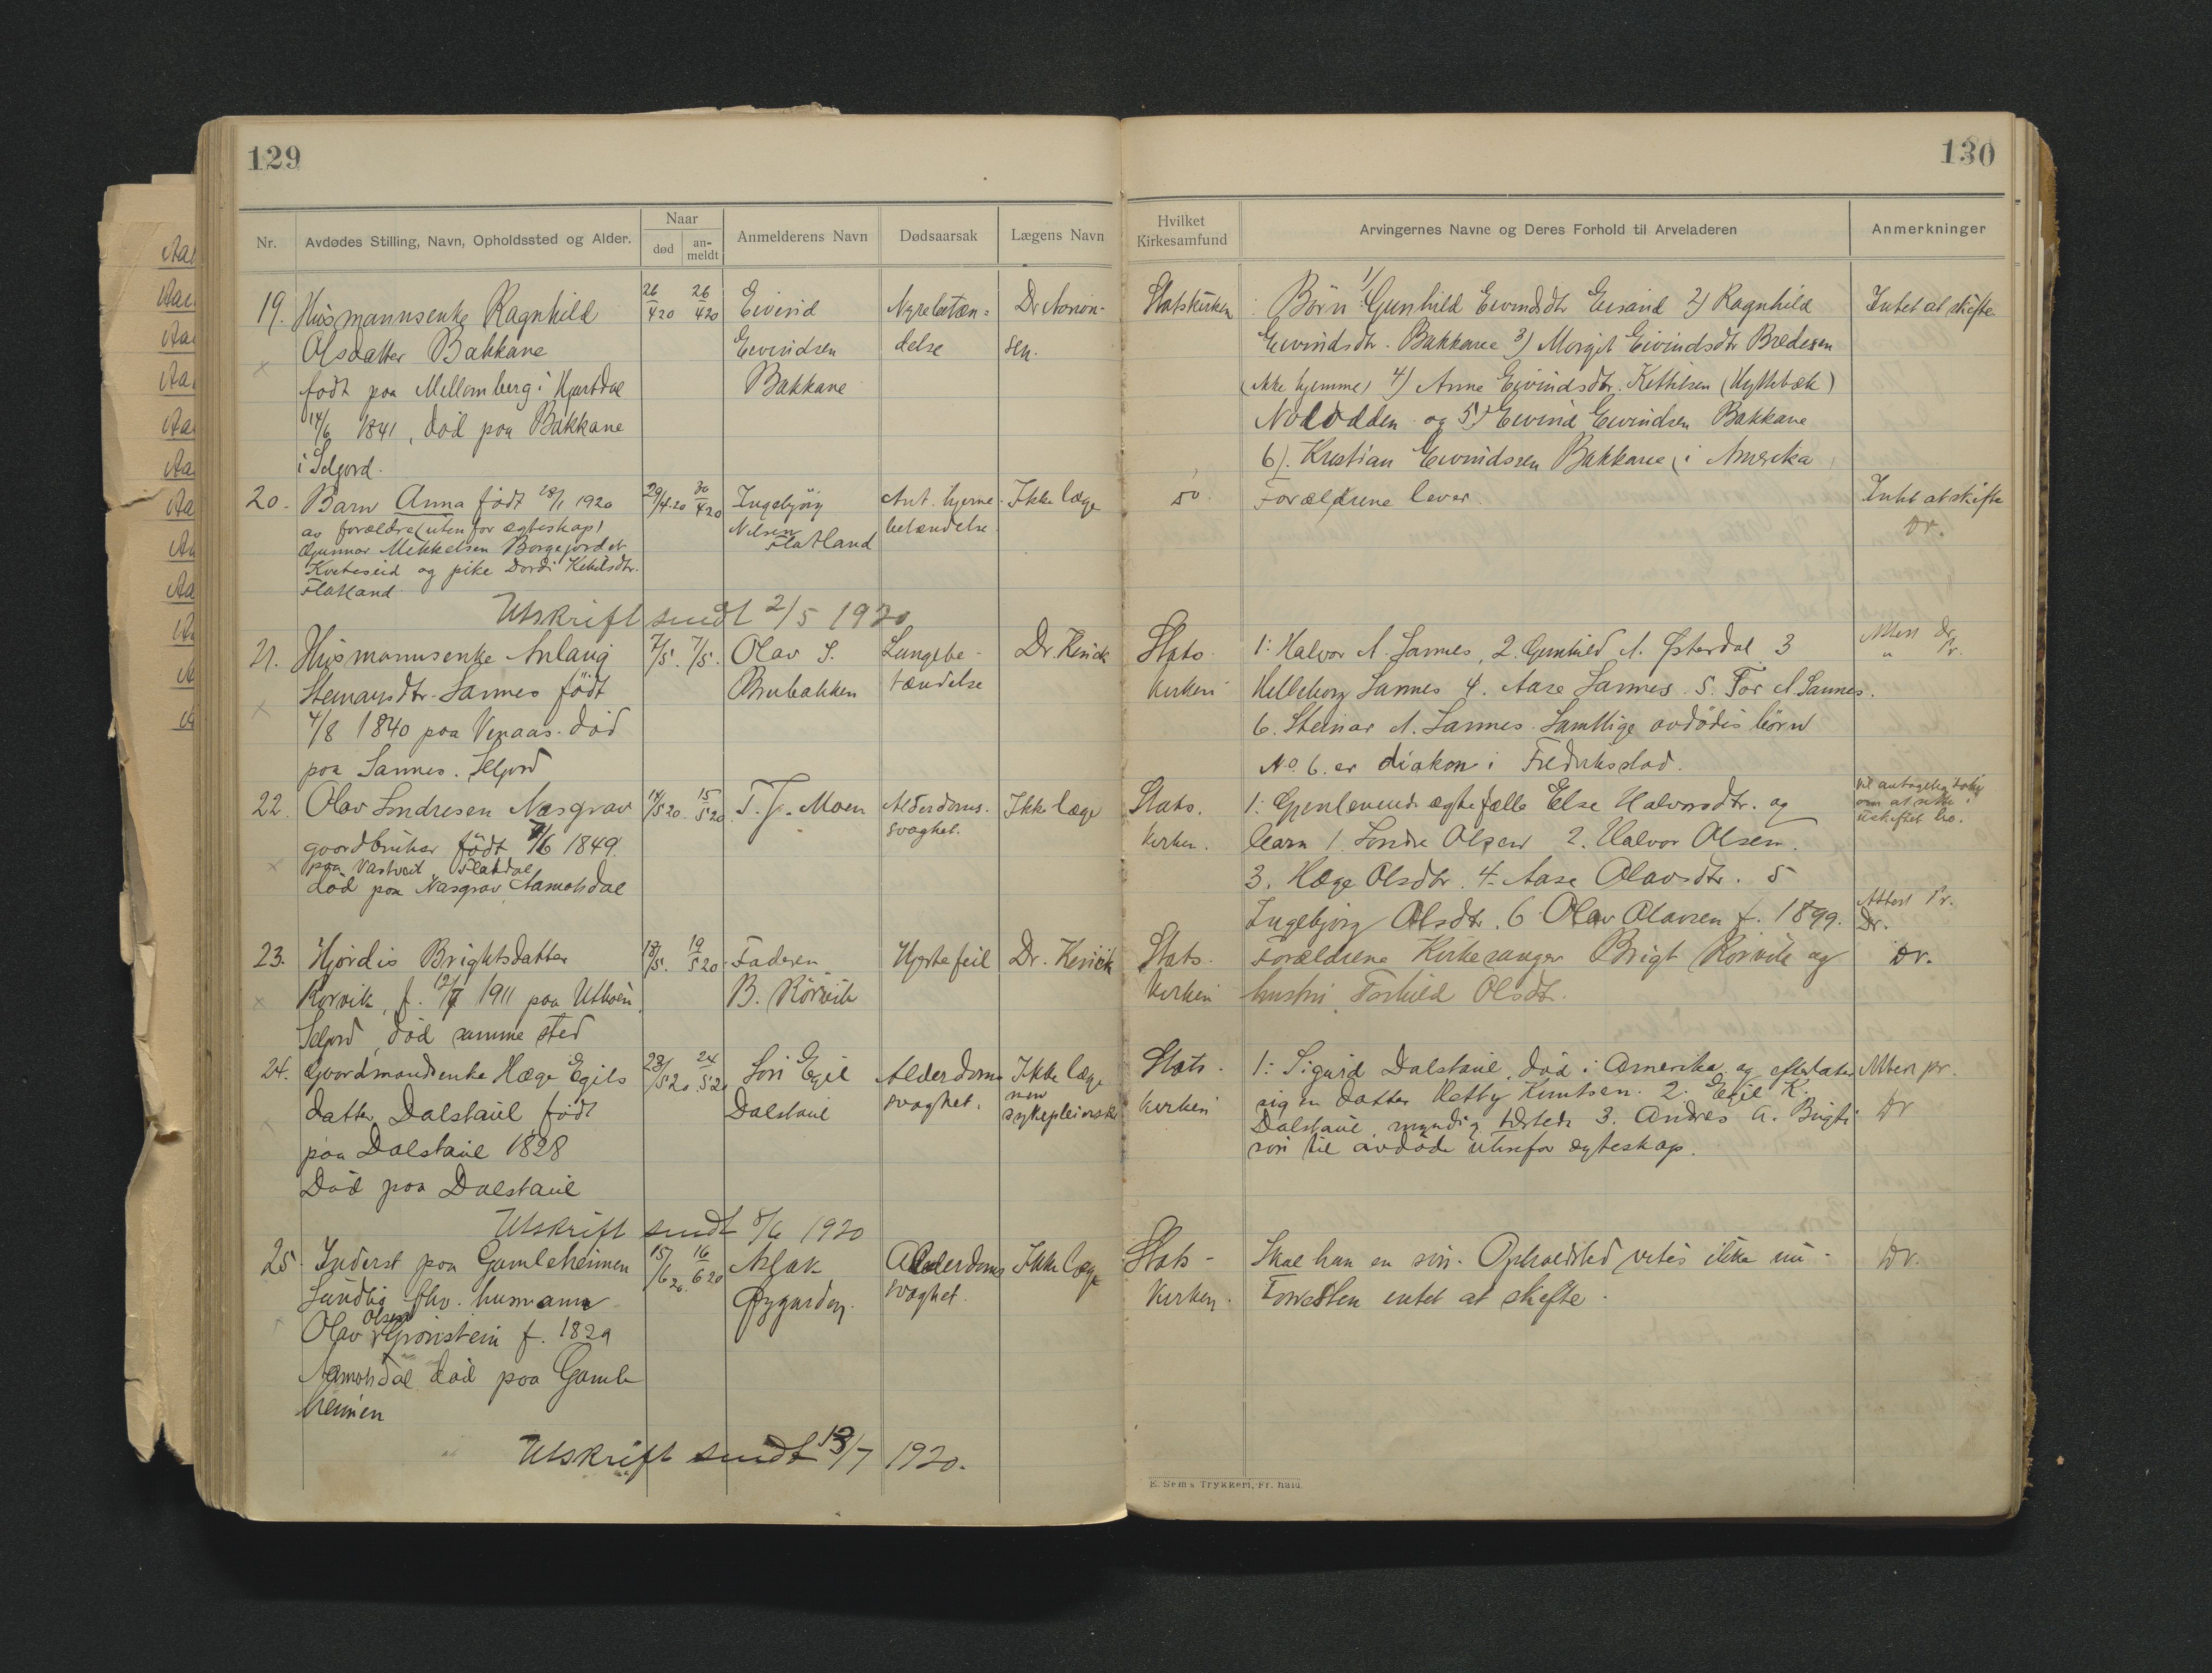 129
Nr.
Avdødes Stilling, Navn, Opholdssted og Alder.
Naar
død
an-
meldt
Anmelderens Navn
Dødsaarsak
Lægens Navn
19. Husmannsenke Ragnhild
Olsdatter Bakkane
født paa Mellemberg i Hjartdal
14/6 1841, død paa Bakkane
i Seljord.
26/4 20
26/4 20
Eivind
Eivindsen
Bakkane
Nyrebetæn=
delse
Dr Aanon-
sen.
20. Barn Anna født 28/1 1920
av forældre (utenfor ægteskap)
Gunnar Mikkelsen Borgejordet
Kviteseid og pike Dordi Ketilsdtr.
Flatland
29/4 20
30/4 20
Ingebjörg
Nilsen
Flatland
Ant. hjerne-
betændelse.
Ikke læge
Utskrift sendt 2/5 1920
21. Husmannsenke Anlaug
Steinarsdtr. Sannes født
4/8 1840 paa Venaas. død
paa Sannes. Seljord
7/5.
7/5.
Olav S.
Brubakken
Lungebe-
tændelse
Dr.
22. Olav Sondresen Nasgrav
gaardbruker født /6 1849.
paa Flatdal
død paa Nasgrav Aamotsdal
14/5 20.
15/5 20
T. J. Moen
Alderdoms-
svaghet.
Ikke læge
23. Hjørdis Brightsdatter
Rorvik, f. 1911 paa
Seljord, død samme sted
18/5.
19/5 20.
Faderen
B. Rörvik
Hjertefeil
Dr.
24. Gaardmandsenke Hæge Egils
datter Dalstaul født
paa Dalstaul 1828
Død paa Dalstaul
23/5 20
24/5 20
Søn Egil
Dalstaul
Alderdoms
svaghet.
Ikke læge
men
sykepleierske
Utskrift sendt 8/6 1920
25. Inderst paa Gamleheimen
fhv. husmann
Olav Olsen Grönstein f. 1829
Aamotsdal død paa Gamle
heimen
15/6 20.
16/6 20
Aslak
Øygarden.
Alderdoms
svaghet.
Ikke læge
Utskrift sendt 13/7 1920.
130
Hvilket
Kirkesamfund
Arvingernes Navne og Deres Forhold til Arveladeren
Anmerkninger
Statskirken
Börn: 1/ Gunhild Eivindsdtr 2) Ragnhild
Eivindsdtr. Bakkane 3) Morgit Eivindsdtr Bredesen
(ikke hjemme) 4) Anne Eivindsdtr. Kettilsen (Hyttebæk)
Notodden og 5) Eivind Eivindsen Bakkane
6). Kristian Eivindssen Bakkane, i Amerika
Intet at skifte
Forældrene lever
Intet at skifte
Dr.
Stats-
kirken
1: Halvor A. Sannes, 2. Gunhild A. Østerdal 3
Helleborg Sannes 4. Aase Sannes. 5. Tor A. Sannes.
6. Steinar A. Sannes. Samtlige avdödes börn
No. 6. er diakon i Fredrikstad.
Attest Dr.
" Pr.
Stats.
kirken.
1: Gjenlevende ægtefælle Else Halvorsdtr. og
barn 1. Sondre Olsen 2. Halvor Olsen.
3. Hæge Olsdtr. 4. Aase Olavsdtr. 5
Ingebjörg Olsdtr. 6. Olav Olavsen f. 1899.
Vil antagelig søke
om at sitte i
uskiftet bo.
Attest Pr.
Dr.
Stats.
kirken
Forældrene Kirkesanger Brigt Rorvik og
hustru Torhild Olsdtr.
Dr.
Stats-
kirken
1: Sigurd Dalstaul, død i Amerika og efterlater
sig en datter Hetty Knutsen. 2. Egil K.
Dalstaul, myndig tilstede 3. Andres A. Brigts
søn til avdøde utenfor egteskap.
Attest pr.
Dr
Stats-
kirken.
Skal han en søn. Opholdsted vites ikke nu.
Forresten intet at skifte.
Dr.
E. Sem's Trykkeri, Fr. hald